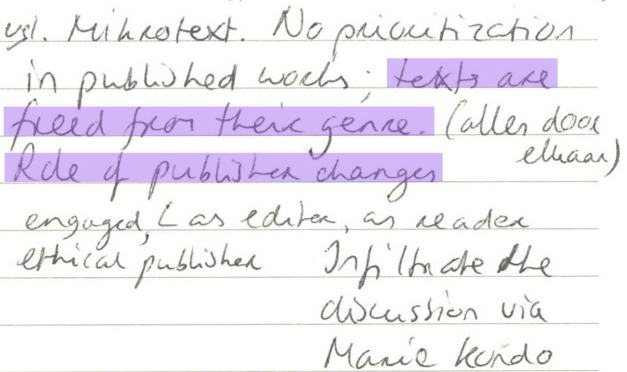 vgl. Mikrotext. No prioritization
in published works; texts are
freed from their genre. (alles door
elkaar)
Role of publisher changes
engaged, L as editor, as reader
ethical publisher Infiltrate the
discussion via
Marie Kondo